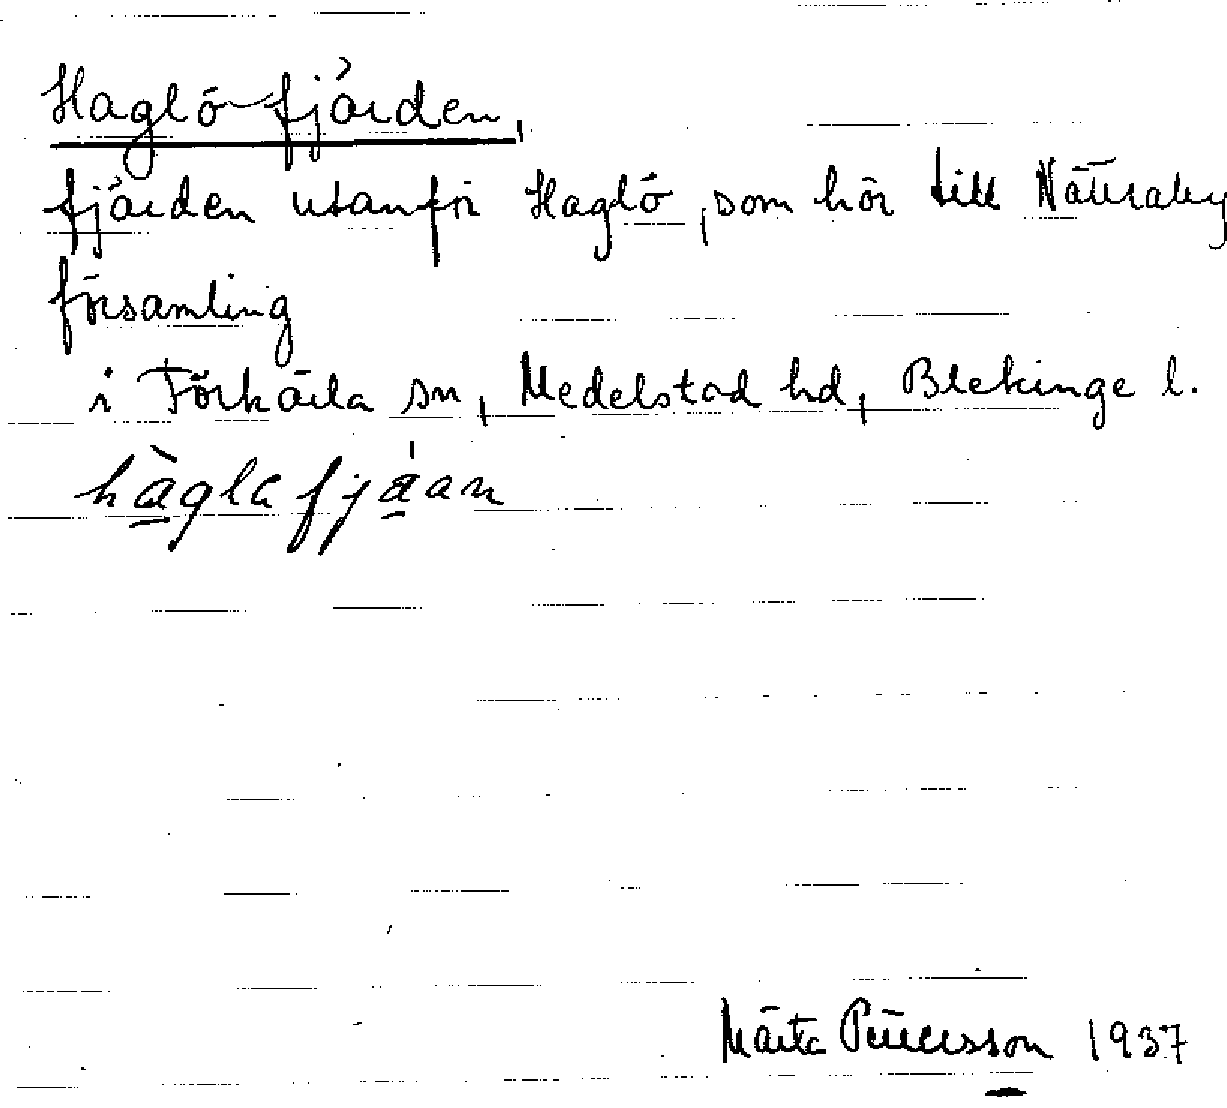 Haglö-fjärden,
fjärden utanför Haglö, som hör till Nättraby
församling
i Förkärla sn, Medelstad hd, Blekinge l.
hàglafjáan
Märta Pettersson 1937